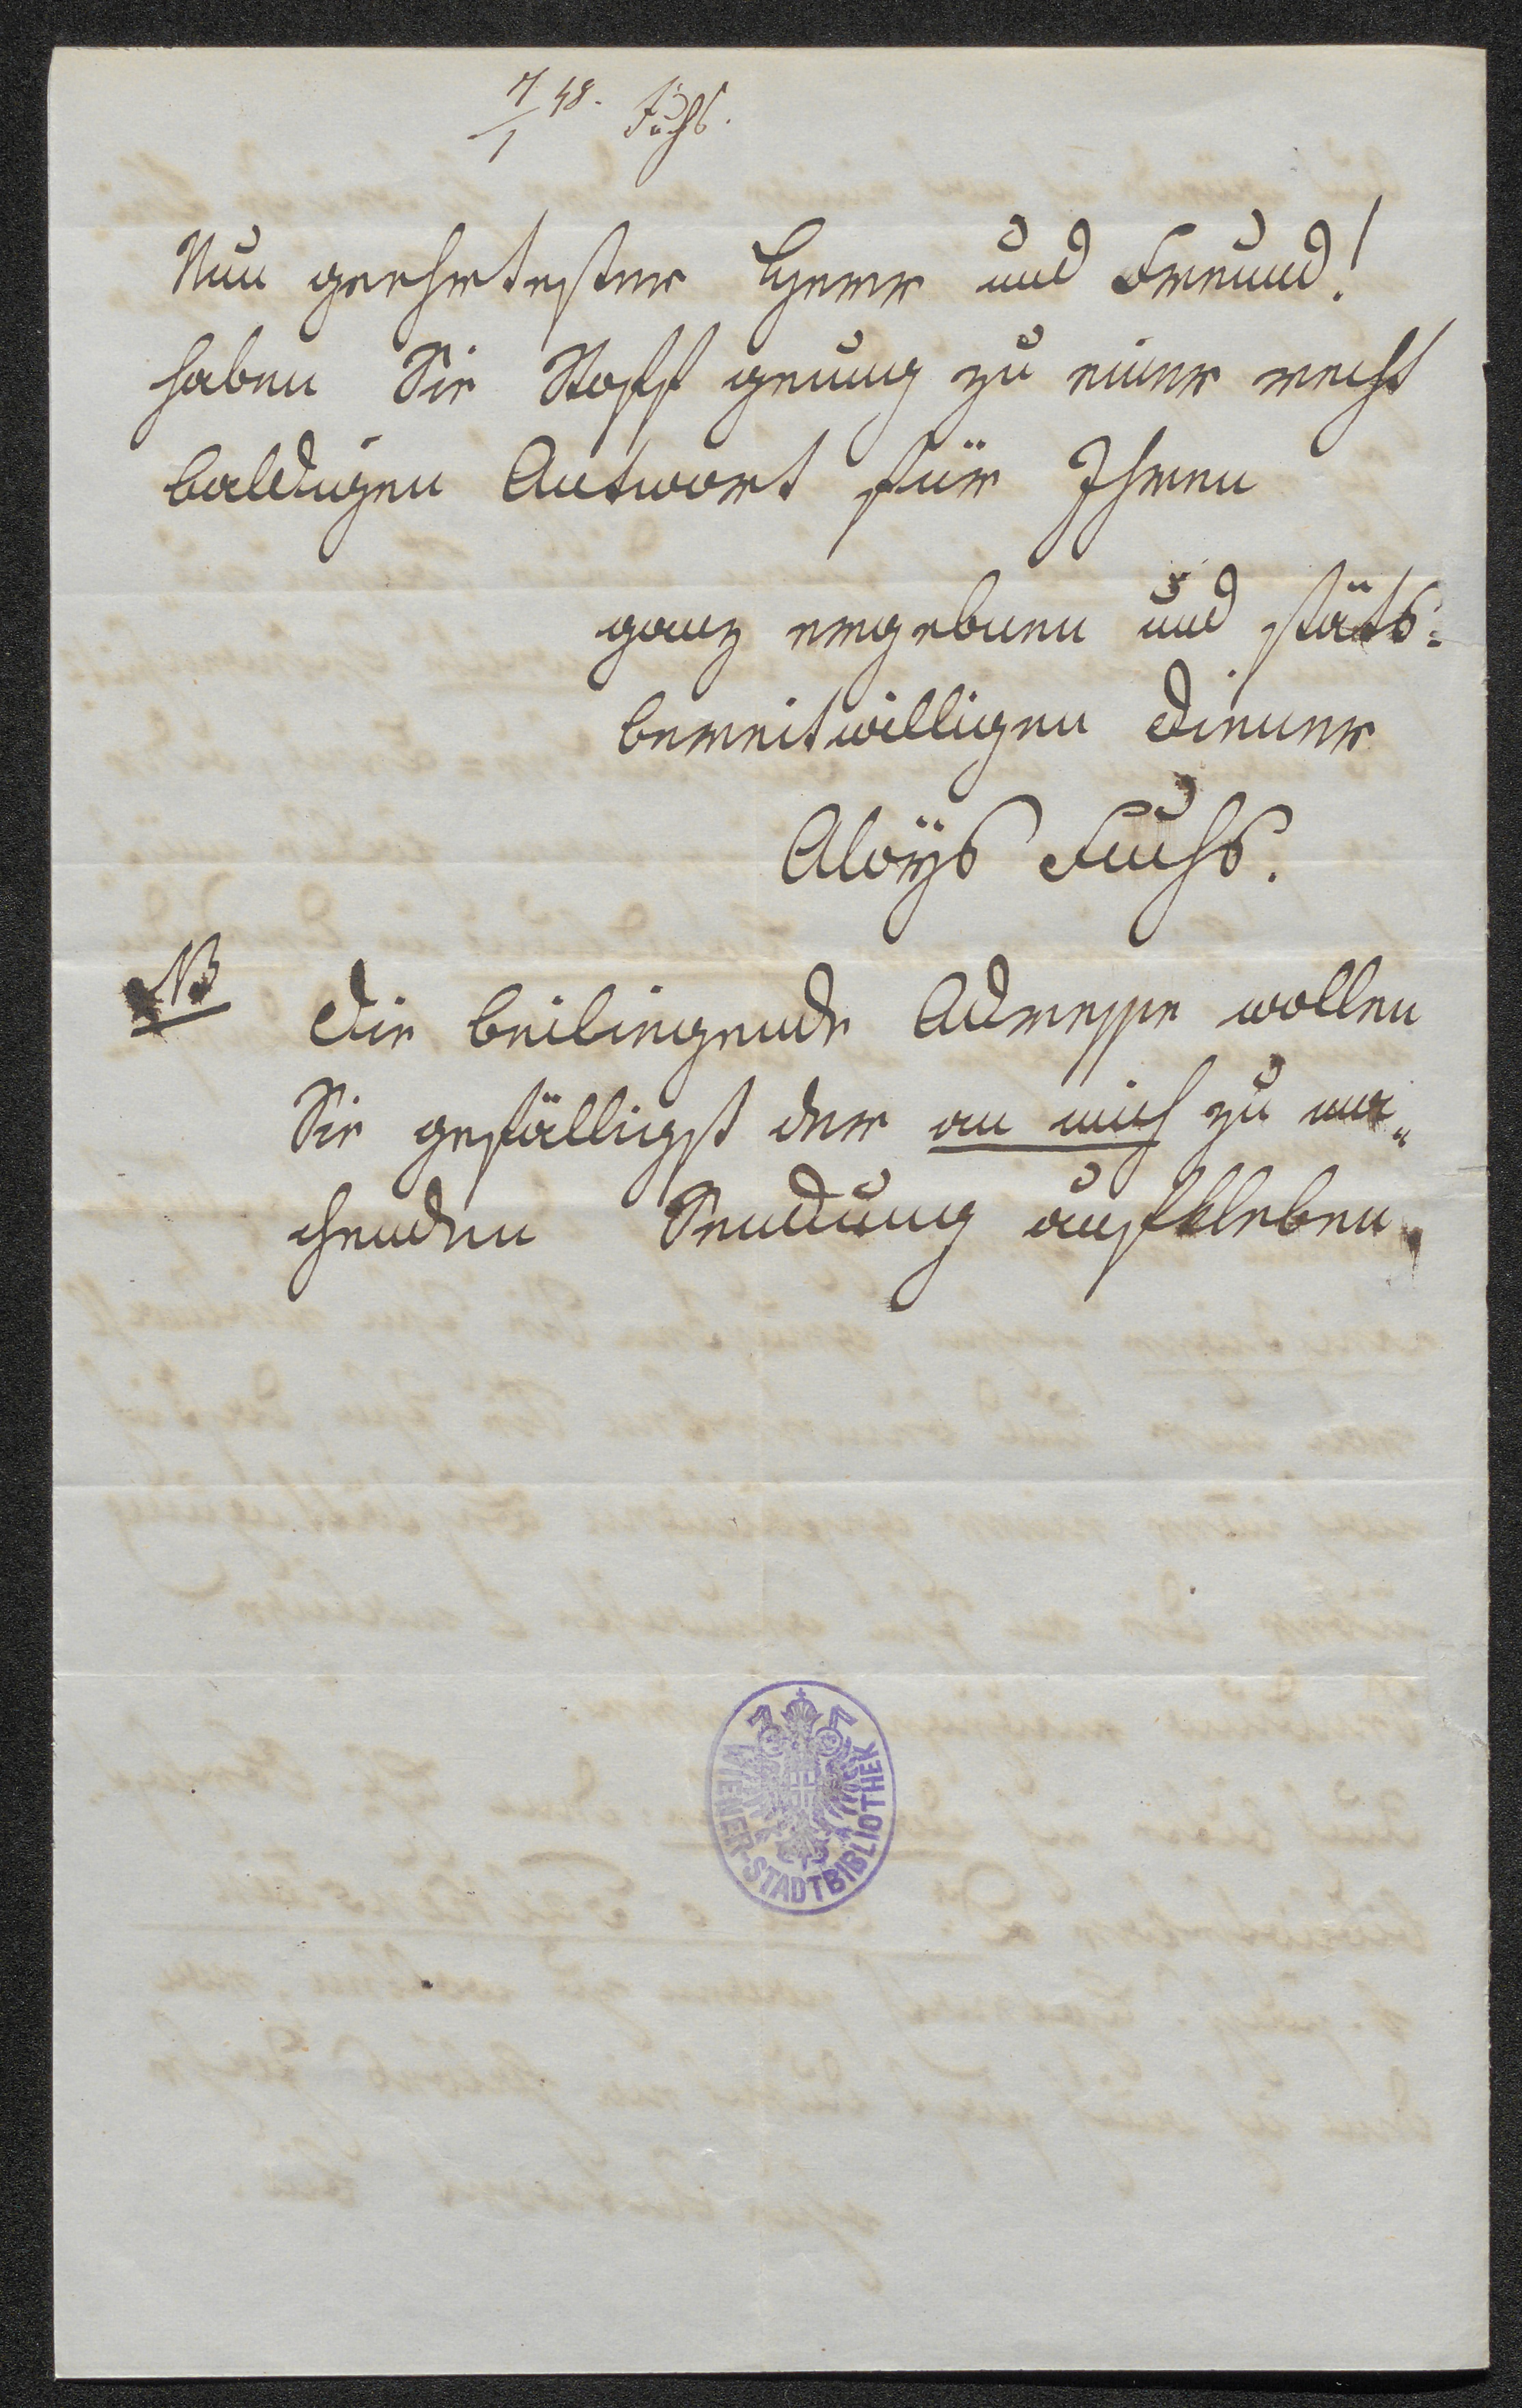 7/1 48. Fuchs.
Nun geehrtester Herr und Freund!
haben Sie Stoff genug zu einer recht
baldigen Antwort für Ihren
ganz ergebnen und stäts=
bereitwilligen Diener
Aloÿs Fuchs.
NB Die beiliegende Adresse wollen
Sie gefälligst der an mich zu ma„
chenden Sendung aufkleben.
WIENER-STADTBIBLIOTHEK